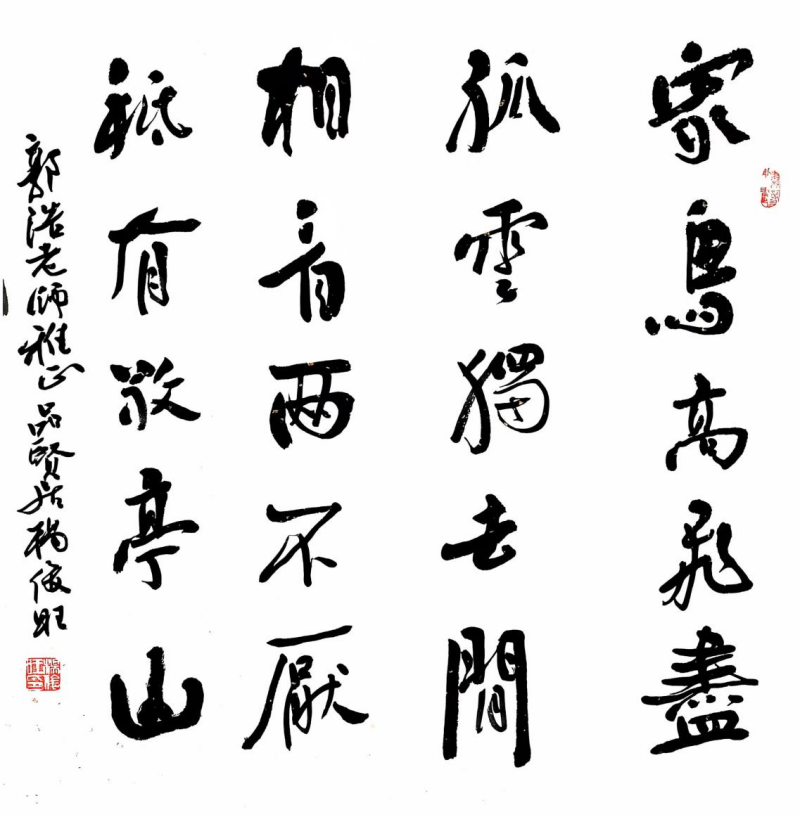 眾鳥高飛盡
孤雲獨去閒
相看兩不厭
祗有敬亭山
郭浩老師雅正品賢居楊俊旺